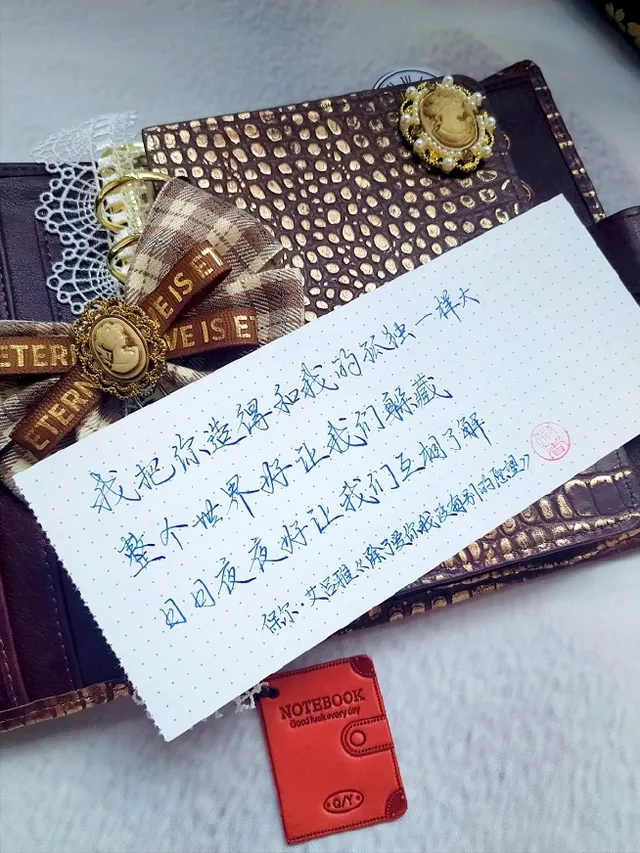 ETERN
VE IS ET
VE IS E
ETERN
我把你造得和我的孤独一样大
整个世界好让我们躲藏
日日夜夜好让我们互相了解
保尔·艾吕雅《除了爱你我没有别的愿望》
NOTEBOOK
Good luck every day
Q/Y